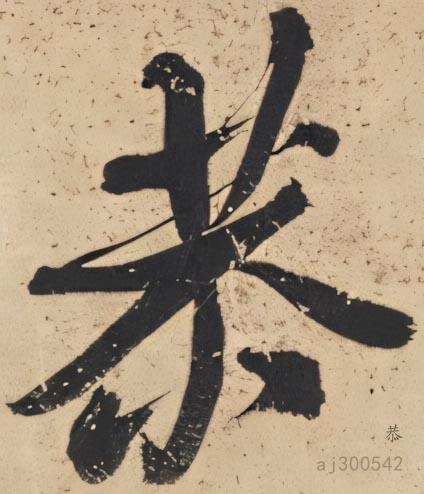 恭
恭
aj300542